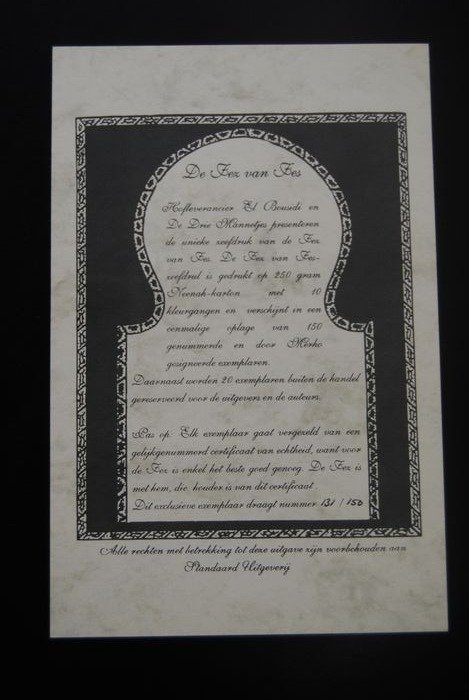 De Fez van Fes
Hofleverancier El Bousidi en
De Drie Mannetjes presenteren
de unieke zeefdruk van de Fez
van Fes. De Fez van Fes-
zeefdruk is gedrukt op 250 gram
Neenah-karton met 10
kleurgangen en verschijnt in een
eenmalige oplage van 150
genummerde en door Merho
gesigneerde exemplaren.
Daarnaast worden 20 exemplaren buiten de handel
gereserveerd voor de uitgevers en de auteurs.
Pas op: Elk exemplaar gaat vergezeld van een
gelijkgenummerd certificaat van echtheid, want voor
de Fez is enkel het beste goed genoeg. De Fez is
met hem, die houder is van dit certificaat.
Dit exclusieve exemplaar draagt nummer 131 / 150
Alle rechten met betrekking tot deze uitgave zijn voorbehouden aan
Standaard Uitgeverij